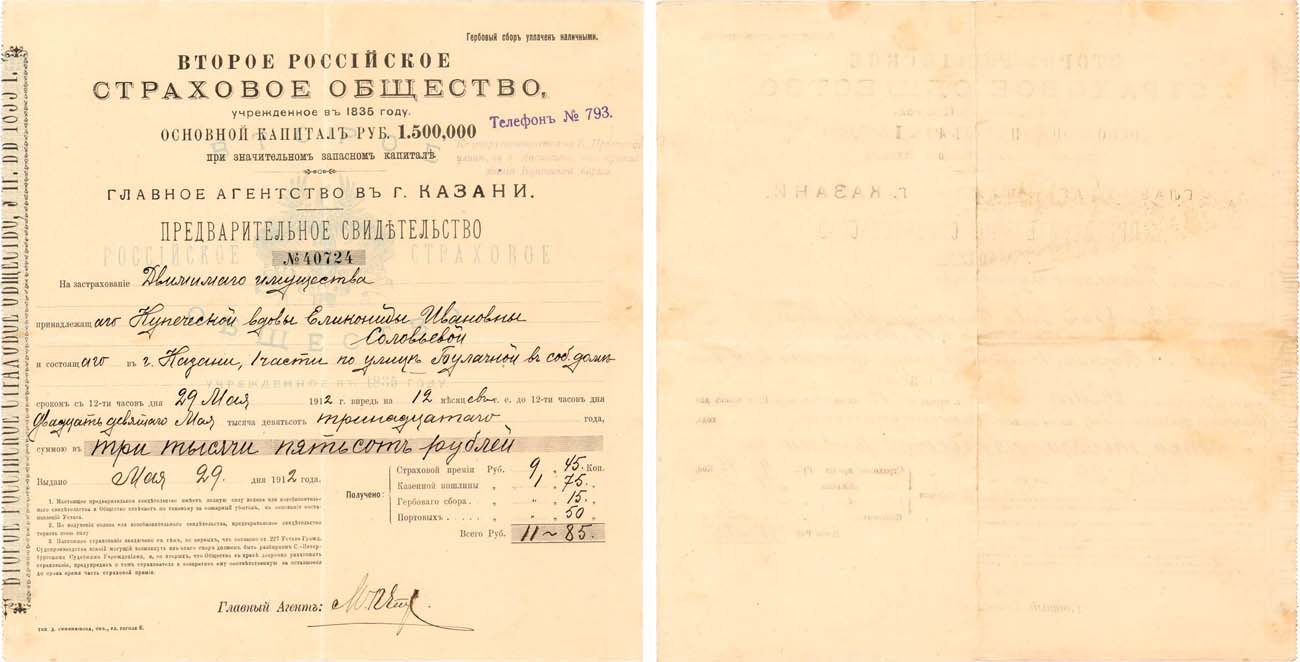 Гербовый сборъ уплаченъ наличными.
ВТОРОЕ РОССІЙСКОЕ
СТРАХОВОЕ ОБЩЕСТВО,
учрежденное въ 1835 году.
ОСНОВНОЙ КАПИТАЛЪ РУБ. 1.500,000
Телефонъ № 793.
при значительномъ запасномъ капиталѣ
ГЛАВНОЕ АГЕНТСТВО ВЪ Г. КАЗАНИ.
ПРЕДВАРИТЕЛЬНОЕ СВИДѢТЕЛЬСТВО
РОССІЙСКОЕ СТРАХОВОЕ
№ 40724
На застрахованіе Движимаго имущества
принадлежащаго Купеческой вдовы Еликониды Ивановны
Соловьевой
и состоящаго въ г. Казани, 1 части по улицѣ Булачной въ соб. домѣ
УЧРЕЖДЕННОЕ ВЪ 1835 ГОДУ.
срокомъ съ 12-ти часовъ дня 29 Мая 1912 г. впредь на 12 мѣсяцевъ т. е. до 12-ти часовъ дня
Двадцать девятаго Мая тысяча девятьсотъ тринадцатаго года,
суммою въ три тысячи пятьсотъ рублей
Выдано Мая 29. дня 1912 года.
Получено:
Страховой преміи Руб. 9 „ 45. Коп.
Казенной пошлины „ 1 „ 75. „
Гербоваго сбора . „ „ „ 15. „
Портовыхъ . . . . . „ „ 50 „
Всего Руб. 11 ~ 85.
1. Настоящее предварительное свидѣтельство имѣетъ полную силу полиса или возобновительнаго свидѣтельства и Общество отвѣчаетъ по таковому за пожарный убытокъ, на основаніи постановленій Устава.
2. По полученіи полиса или возобновительнаго свидѣтельства, предварительное свидѣтельство теряетъ свою силу
Главный Агентъ:
ВТОРОЕ РОССІЙСКОЕ СТРАХОВОЕ ОБЩЕСТВО,